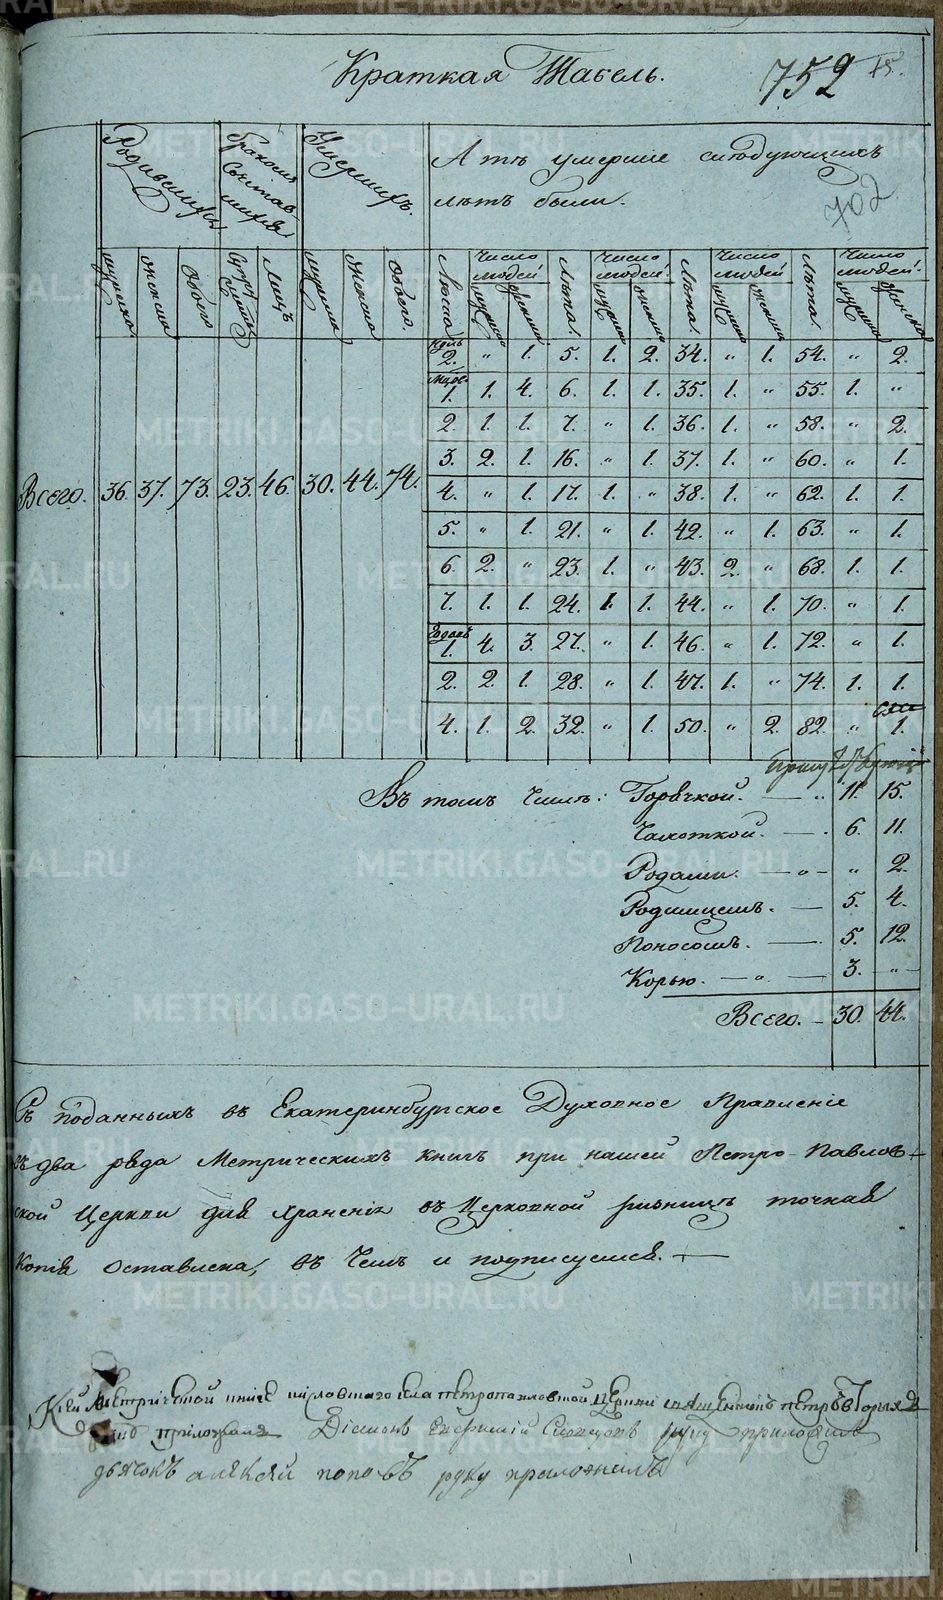 Краткая Табель.
752
702
Родившихся
Бракосочетавшихся
Умершихъ.
А тѣ умершіе слѣдующихъ
лѣтъ были.
мужеска
женска
Обоего
Супружествъ
Лицъ
мужеска
женска
Обоего.
Лѣта
Число людей
Лѣта.
Число людей.
Лѣта.
Число людей
Лѣта.
Число людей.
2. " 1. 5. 1. 2. 34. " 1. 54. " 2.
1. 1. 4. 6. 1. 1. 35. 1. " 55. 1. "
2. 1. 1. 7. " 1. 36. 1. " 58. " 2.
3. 2. 1. 16. " 1. 37. 1. " 60. " 1.
Всего. 36. 37. 73. 23. 46. 30. 44. 74.
4. " 1. 17. 1. " 38. 1. " 62. 1. 1.
5. " 1. 21. " 1. 42. " 1. 63. " 1.
6. 2. " 23. 1. " 43. 2. " 68. 1. 1.
7. 1. 1. 24. 1. 1. 44. " 1. 70. " 1.
1. 4. 3. 27. " 1. 46. " 1. 72. " 1.
2. 2. 1. 28. " 1. 47. 1. " 74. 1. 1.
4. 1. 2. 32. " 1. 50. " 2. 82. " 1.
Въ томъ числѣ: Горячкой. — 11. 15.
Чахоткой. — 6. 11.
Родами. — " — " 2.
Родимцемъ. — 5. 4.
Поносомъ. — 5. 12.
Корью. — " — 3. — " —
Всего. — 30. 44.
Съ поданныхъ въ Екатеринбургское Духовное Правленіе
въ два ряда Метрическихъ книгъ при нашей Петро-Павлов-
ской Церкви для храненія въ Церковной ризницѣ точная
Копія оставлена, въ чемъ и подписуемся.
Ксей метрической книге села петропавловской церкви священникъ петръ
приложилъ Діаконъ руку приложилъ
дьячокъ алѣксѣй поповъ руку приложилъ
METRIKI.GASO-URAL.RU